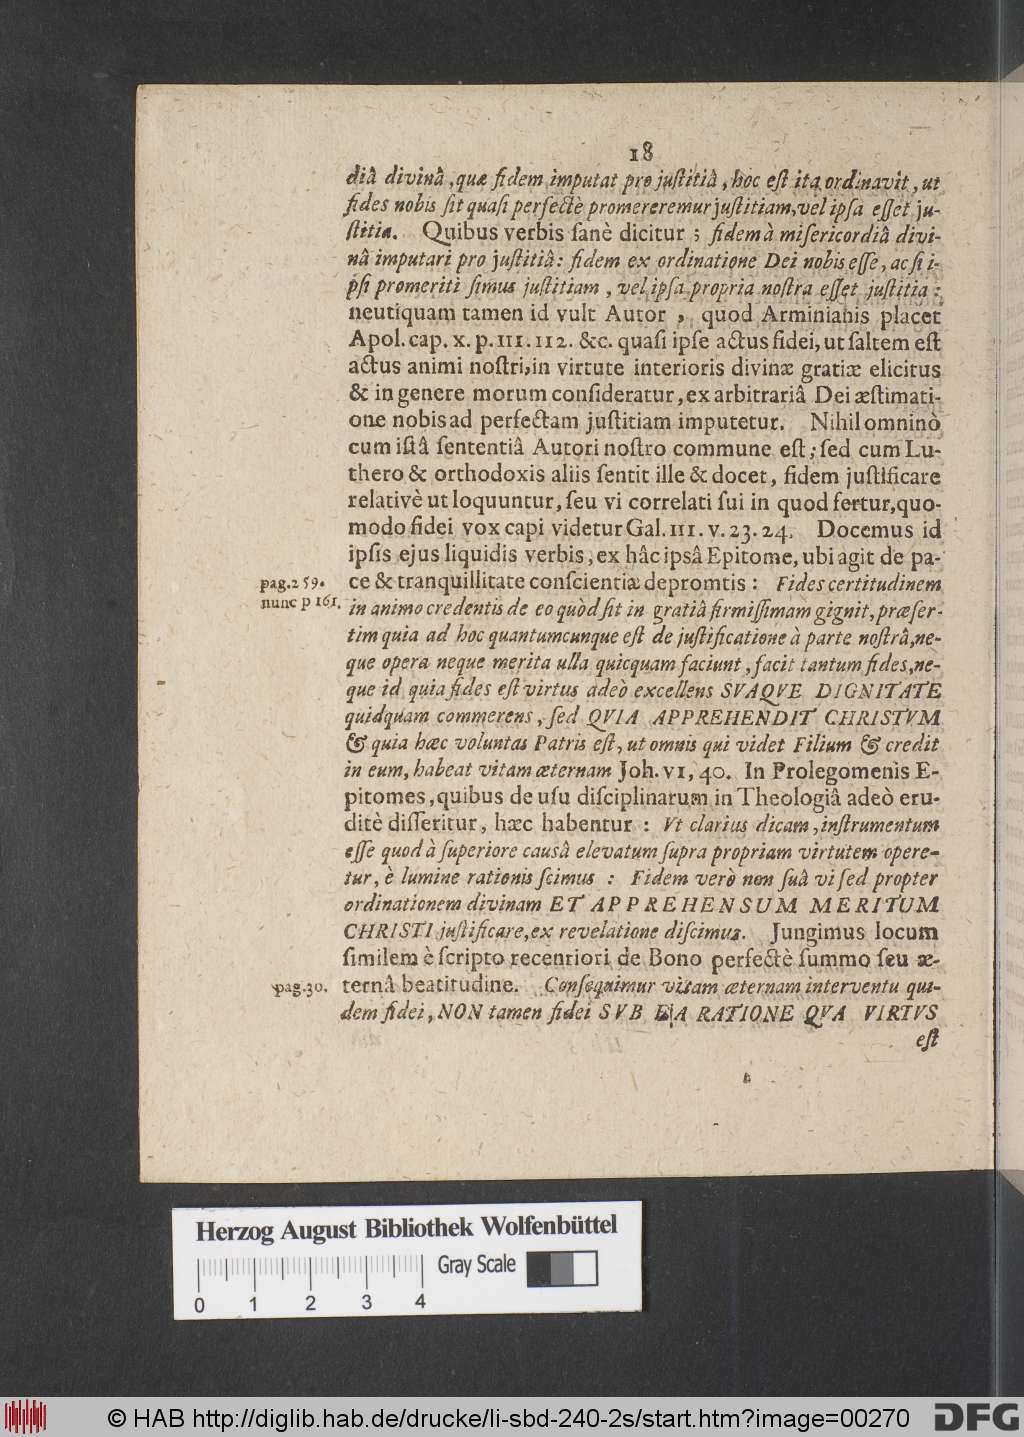 18
diâ divinâ, quæ fidem imputat pro justitiâ, hoc est ita ordinavit, ut
fides nobis sit quasi perfectè promereremur justitiam, vel ipsa esset ju-
stitia. Quibus verbis sanè dicitur; fidem à misericordiâ divi-
nâ imputari pro justitiâ: fidem ex ordinatione Dei nobis esse, ac si i-
psi promeriti simus justitiam, vel ipsa propria nostra esset justitia:
neutiquam tamen id vult Autor, quod Arminianis placet
Apol. cap. x. p. III. 112. &c. quasi ipse actus fidei, ut saltem est
actus animi nostri, in virtute interioris divinæ gratiæ elicitus
& in genere morum consideratur, ex arbitrariâ Dei æstimati-
one nobis ad perfectam justitiam imputetur. Nihil omninò
cum istâ sententiâ Autori nostro commune est; sed cum Lu-
thero & orthodoxis aliis sentit ille & docet, fidem justificare
relativè ut loquuntur, seu vi correlati sui in quod fertur, quo-
modo fidei vox capi videtur Gal. III. v. 23. 24. Docemus id
ipsis ejus liquidis verbis, ex hâc ipsâ Epitome, ubi agit de pa-
pag. 259. ce & tranquillitate conscientiæ depromtis: Fides certitudinem
nunc p 161. in animo credentis de eo quòd sit in gratiâ firmissimam gignit, præser-
tim quia ad hoc quantumcunque est de justificatione à parte nostrâ, ne-
que opera neque merita ulla quicquam faciunt, facit tantum fides, ne-
que id quia fides est virtus adeò excellens SVAQVE DIGNITATE
quidquam commerens, sed QVIA APPREHENDIT CHRISTVM
& quia hæc voluntas Patris est, ut omnis qui videt Filium & credit
in eum, habeat vitam æternam Joh. VI, 40. In Prolegomenis E-
pitomes, quibus de usu disciplinarum in Theologiâ adeò eru-
ditè disseritur, hæc habentur: Vt clarius dicam, instrumentum
esse quod à superiore causâ elevatum supra propriam virtutem opere-
tur, è lumine rationis scimus: Fidem verò non suâ vi sed propter
ordinationem divinam ET APPREHENSUM MERITUM
CHRISTI justificare, ex revelatione discimus. Jungimus locum
similem è scripto recentiori de Bono perfectè summo seu æ-
pag. 30. ternâ beatitudine. Consequimur vitam æternam interventu qui-
dem fidei, NON tamen fidei SVB EA RATIONE QVA VIRTVS
est
Herzog August Bibliothek Wolfenbüttel
Gray Scale
0 1 2 3 4
© HAB http://diglib.hab.de/drucke/li-sbd-240-2s/start.htm?image=00270
DFG